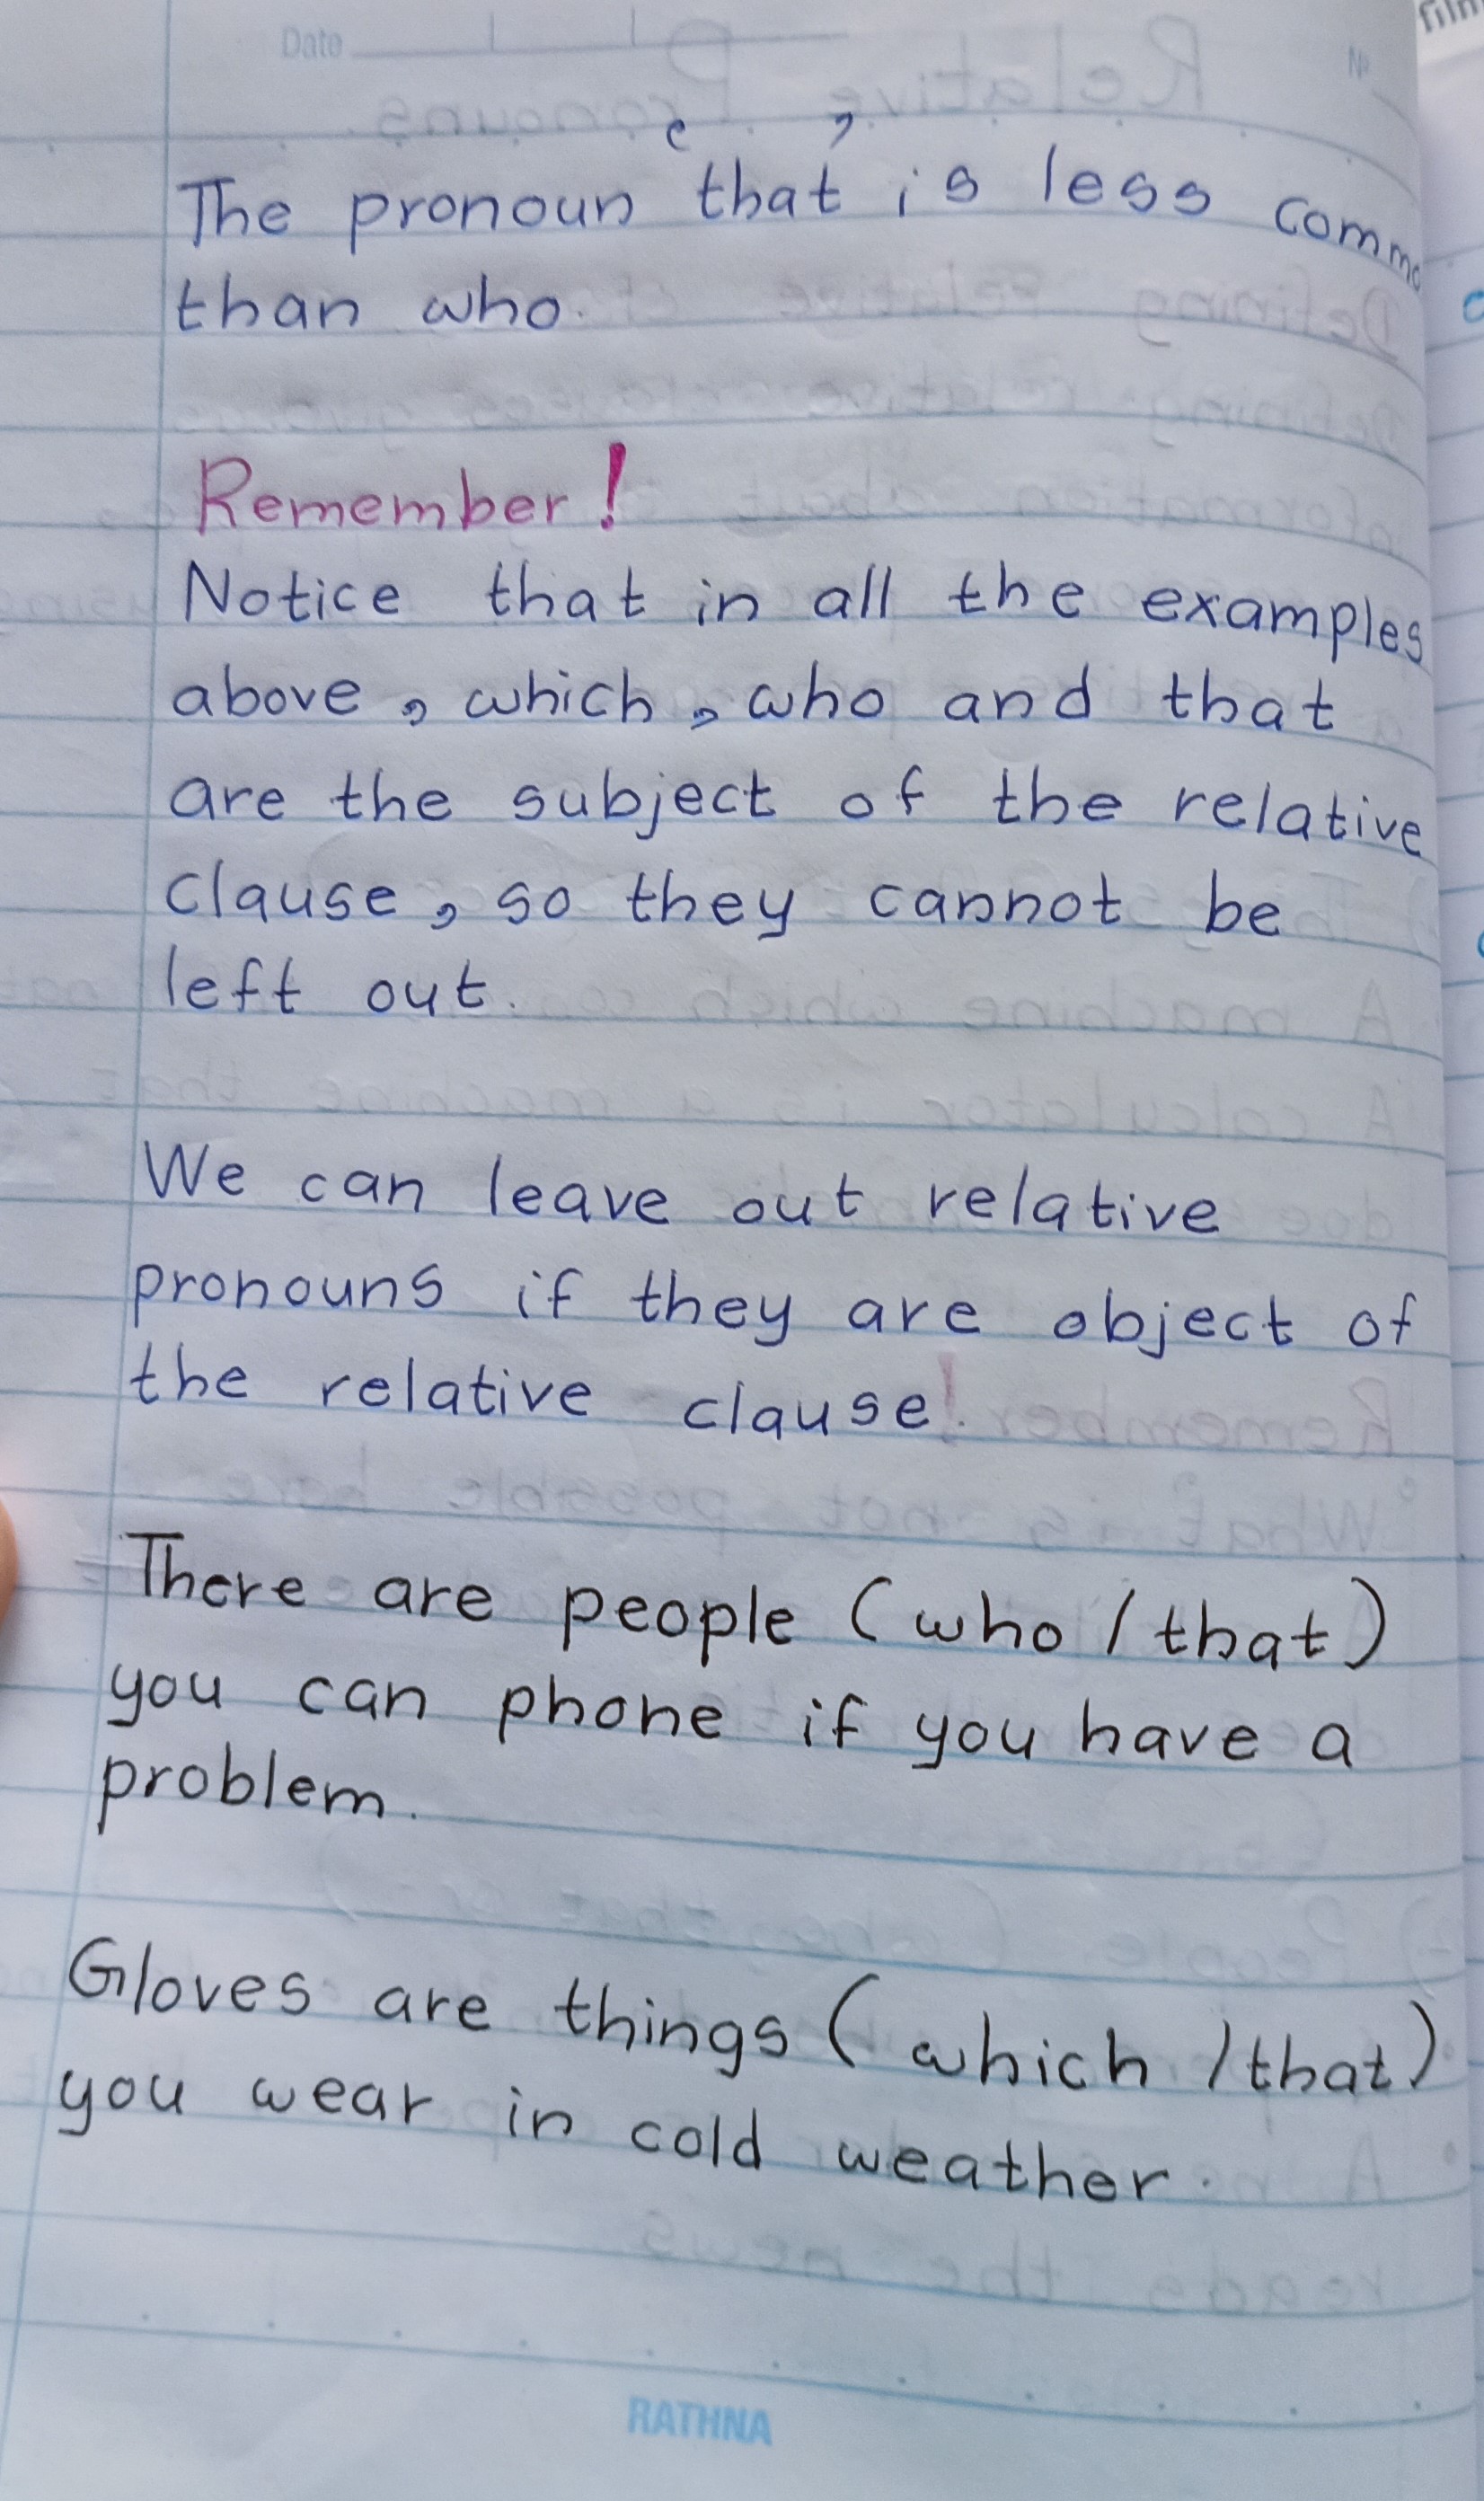 Date
The pronoun 'that' is less comm
than who.
Remember!
Notice that in all the examples
above, which, who and that
are the subject of the relative
clause, so they cannot be
left out.
We can leave out relative
pronouns if they are object of
the relative clause.
There are people (who / that)
you can phone if you have a
problem.
Gloves are things (which / that)
you wear in cold weather.
RATHNA